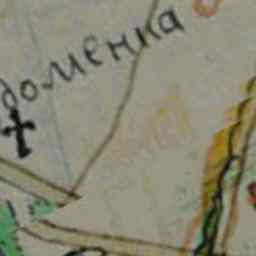 доменка